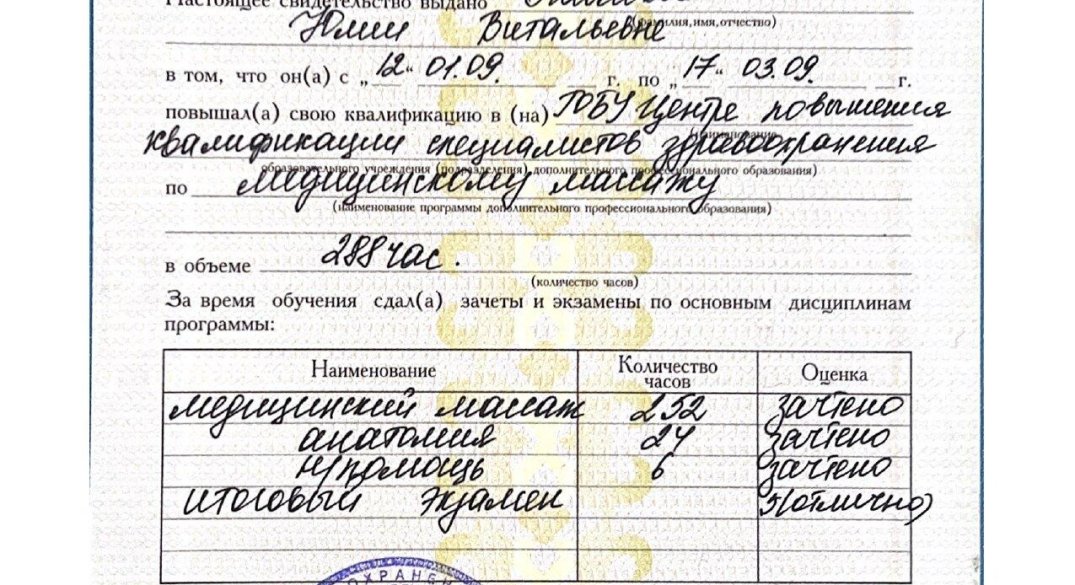 Настоящее свидетельство выдано
(фамилия, имя, отчество)
Юлии Витальевне
в том, что он(а) с „12“ 01.09. г. по „17“ 03.09. г.
повышал(а) свою квалификацию в (на) ГОБУ Центре повышения
(наименование
квалификации специалистов здравоохранения
образовательного учреждения (подразделения) дополнительного профессионального образования)
по медицинскому массажу
(наименование программы дополнительного профессионального образования)
в объеме 288 час.
(количество часов)
За время обучения сдал(а) зачеты и экзамены по основным дисциплинам
программы:
Наименование Количество часов Оценка
медицинский массаж 252 зачтено
анатомия 24 зачтено
н/помощь 6 зачтено
итоговый экзамен 5(отлично)
ОХРАНЕН